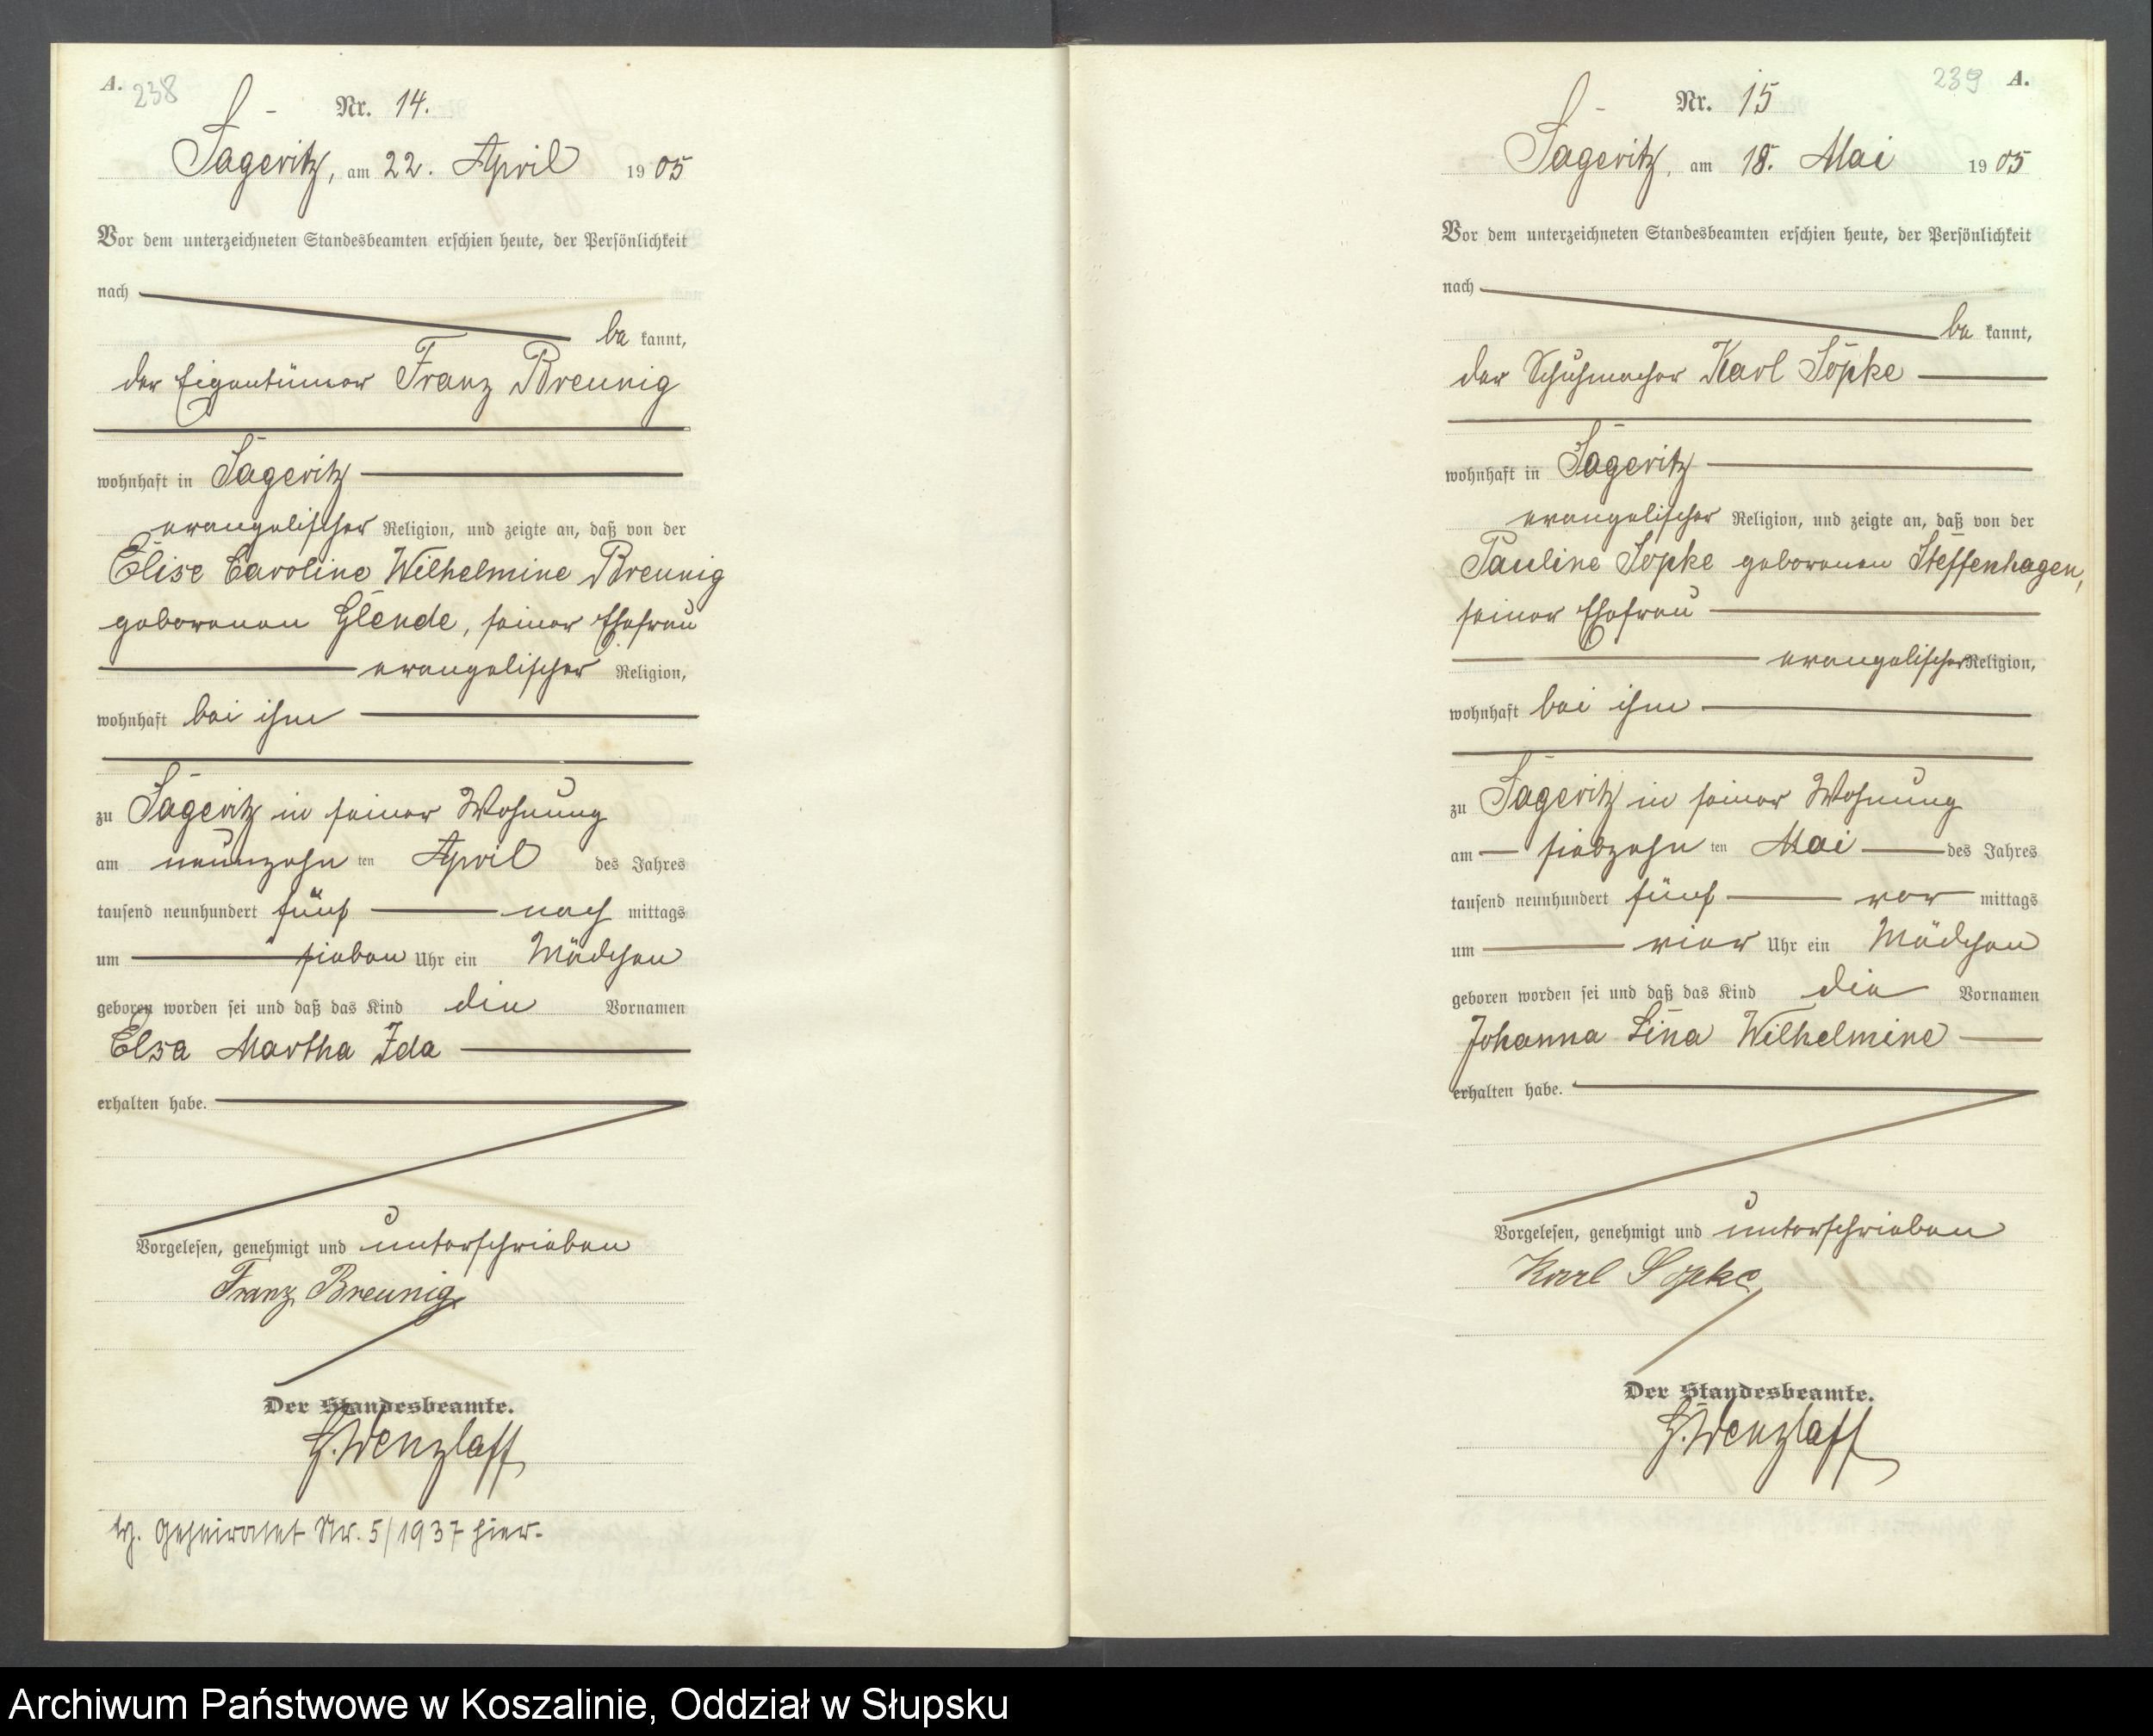 A.
238
Nr. 14.
Sageritz, am 22. April 1905
Vor dem unterzeichneten Standesbeamten erschien heute, der Persönlichkeit
nach
be kannt,
der Eigentümer Franz Breunig
wohnhaft in Sageritz
evangelischer Religion, und zeigte an, daß von der
Elise Caroline Wilhelmine Breunig
geborenen Glende, seiner Ehefrau
evangelischer Religion,
wohnhaft bei ihm
zu Sageritz in seiner Wohnung
am neunzehn ten April des Jahres
tausend neunhundert fünf nach mittags
um sieben Uhr ein Mädchen
geboren worden sei und daß das Kind die Vornamen
Elsa Martha Ida
erhalten habe.
Vorgelesen, genehmigt und unterschrieben
Franz Breunig
Der Standesbeamte.
G. Wenzlaff
Nr. 5/1937 hier.
239
A.
Nr. 15
Sageritz, am 18. Mai 1905
Vor dem unterzeichneten Standesbeamten erschien heute, der Persönlichkeit
nach
be kannt,
der Schuhmacher Karl Söpke
wohnhaft in Sageritz
evangelischer Religion, und zeigte an, daß von der
Pauline Söpke geborenen Steffenhagen,
seiner Ehefrau
evangelischer Religion,
wohnhaft bei ihm
zu Sageritz in seiner Wohnung
am siebzehn ten Mai des Jahres
tausend neunhundert fünf vor mittags
um vier Uhr ein Mädchen
geboren worden sei und daß das Kind die Vornamen
Johanna Lina Wilhelmine
erhalten habe.
Vorgelesen, genehmigt und unterschrieben
Karl Söpke
Der Standesbeamte.
G. Wenzlaff
Archiwum Państwowe w Koszalinie, Oddział w Słupsku